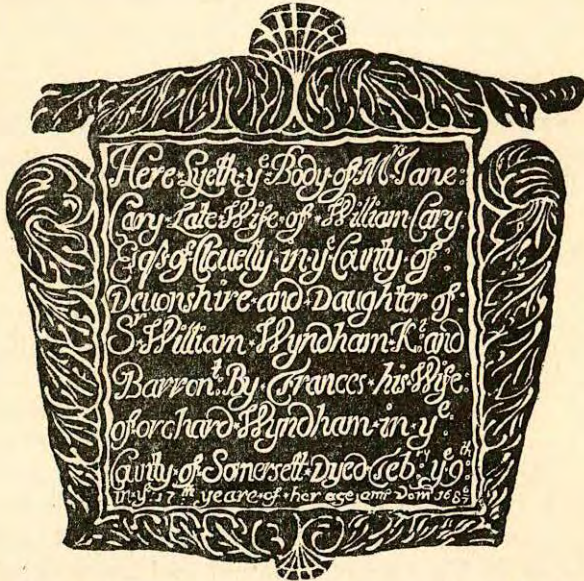 Here Lyeth yᵉ Body of Mʳˢ Jane:
Cary Late Wife of William Cary
Esqʳ of Clouelly in yᵉ Caunty of
Deuonshire and Daughter of:
Sʳ William Wyndham Kᵗ: and
Barronᵗ: By Frances his Wife:
of orchard Wyndham in yᵉ:
Caunty of Somersett Dyed Febʳʸ yᵉ 9ᵗʰ:
in yᵉ 17ᵗʰ yeare of her age Dom 168 6/7